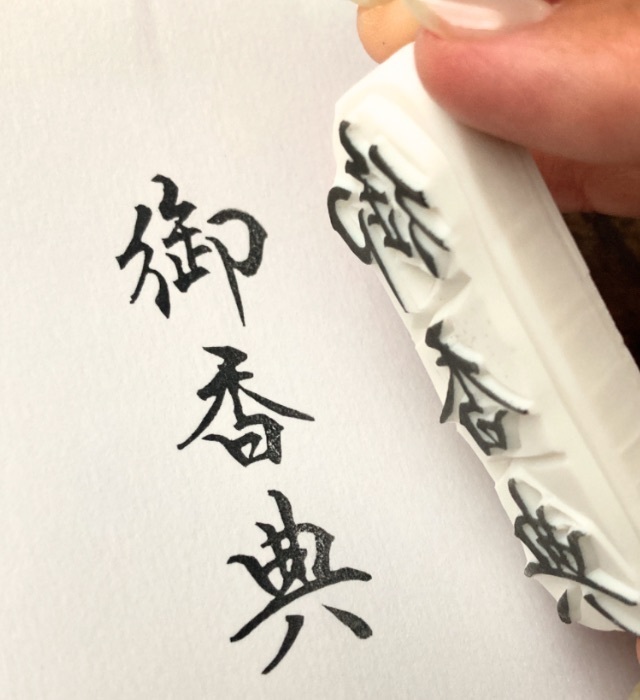 御香典